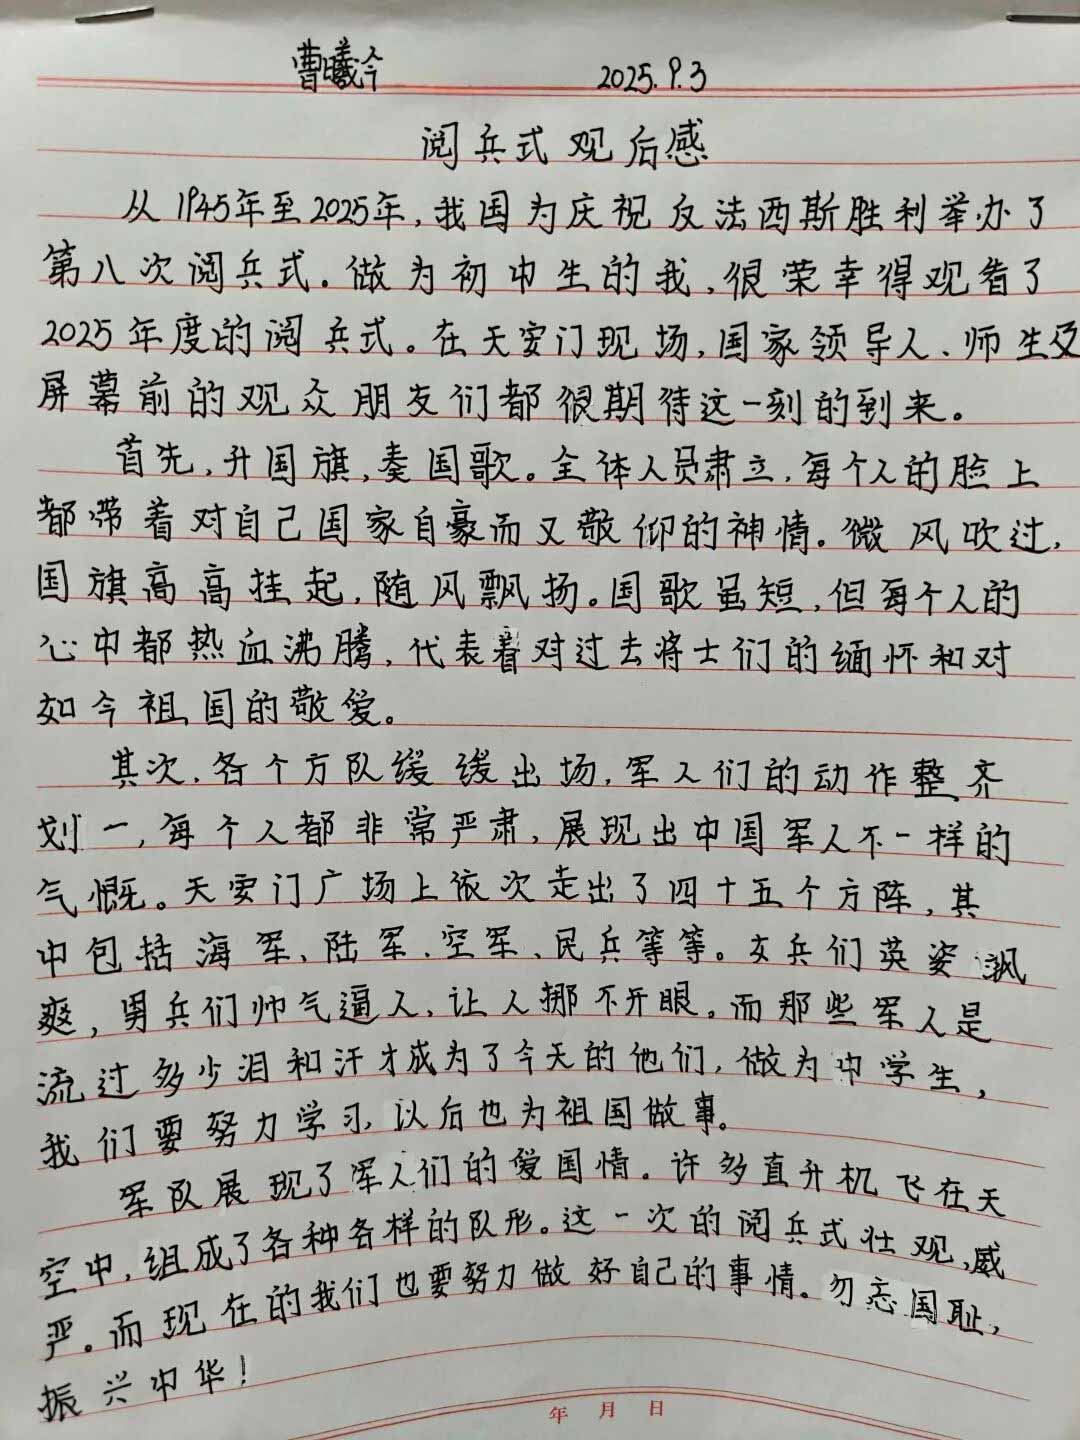 曹曦今 2025.9.3
阅兵式观后感
从1945年至2025年,我国为庆祝反法西斯胜利举办了
第八次阅兵式。做为初中生的我,很荣幸得观看了
2025年度的阅兵式。在天安门现场,国家领导人、师生及
屏幕前的观众朋友们都很期待这一刻的到来。
首先,升国旗,奏国歌。全体人员肃立,每个人的脸上
都带着对自己国家自豪而又敬仰的神情。微风吹过,
国旗高高挂起,随风飘扬。国歌虽短,但每个人的
心中都热血沸腾,代表着对过去将士们的缅怀和对
如今祖国的敬爱。
其次,各个方队缓缓出场,军人们的动作整齐
划一,每个人都非常严肃,展现出中国军人不一样的
气慨。天安门广场上依次走出了四十五个方阵,其
中包括海军、陆军、空军、民兵等等。女兵们英姿飒
爽,男兵们帅气逼人,让人挪不开眼。而那些军人是
流过多少泪和汗才成为了今天的他们,做为中学生,
我们要努力学习,以后也为祖国做事。
军队展现了军人们的爱国情。许多直升机飞在天
空中,组成了各种各样的队形。这一次的阅兵式壮观,威
严。而现在的我们也要努力做好自己的事情。勿忘国耻,
振兴中华!
年 月 日